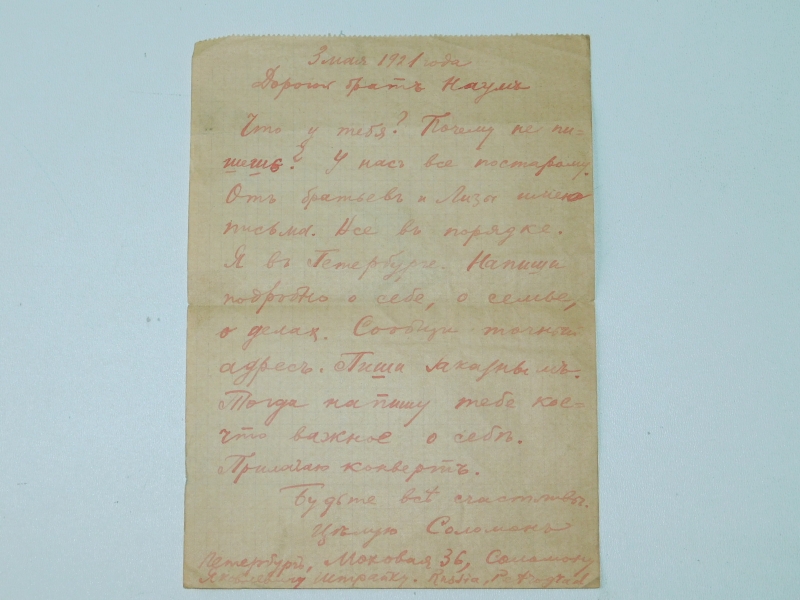 3 мая 1921 года
Дорогой братъ Наумъ
Что у тебя? Почему не пи-
шишь? У насъ все постарому.
Отъ братьевъ и Лизы имею
письма. Все въ порядке.
Я въ Петербурге. Напиши
подробно о себе, о семье,
о делах. Сообщи точный
адресъ. Пиши заказнымъ.
Тогда напишу тебе кое-
что важное о себѣ.
Прилагаю конвертъ.
Будьте всѣ счастливы.
Цѣлую Соломонъ
Петербургъ, Моховая 36, Соломону
Яковлевичу Russia, Petrograd